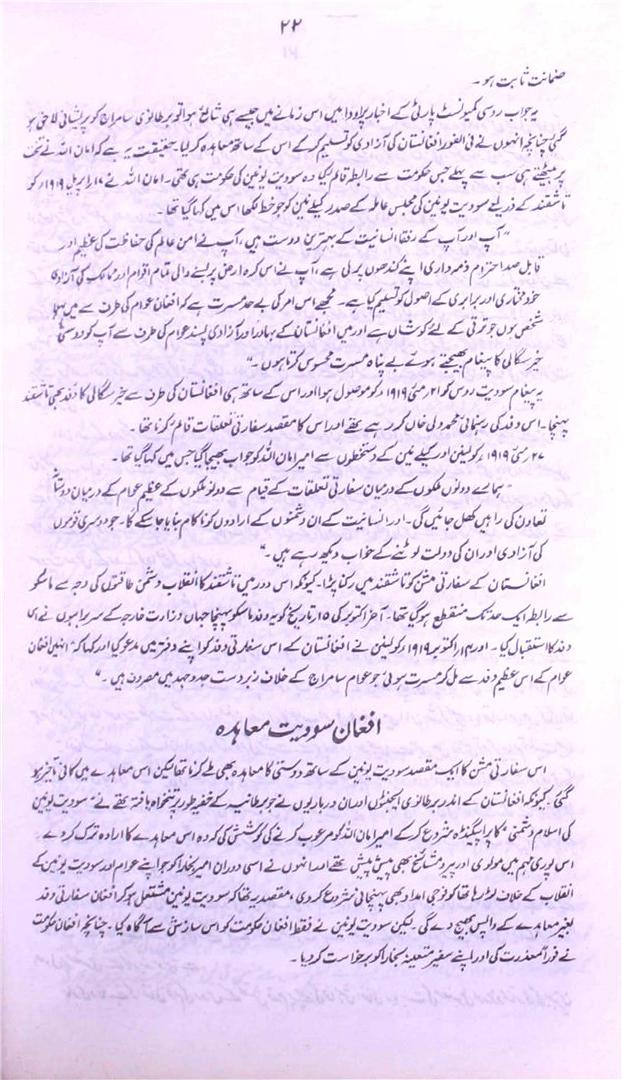 ۲۲
ضمانت ثابت ہو ۔
یہ جواب روسی کمیونسٹ پارٹی کے اخبار پراودا میں اس زمانے میں جیسے ہی شائع ہوا تو برطانوی سامراج کو پریشانی لاحق ہو
گئی چنانچہ انہوں نے فی الفور افغانستان کی آزادی کو تسلیم کر کے اس کے ساتھ معاہدہ کر لیا۔ حقیقت یہ ہے کہ امان اللہ نے تخت
پر بیٹھتے ہی سب سے پہلے جس حکومت سے رابطہ قائم کیا وہ سوویت یونین کی حکومت ہی تھی۔ امان اللہ نے اپریل ۱۹۱۹ء کو
تاشقند کے ذریعے سوویت یونین کی مجلس عاملہ کے صدر کیلئے لینن کو جو خط لکھا اس میں کہا گیا تھا۔
"آپ اور آپ کے رفقا انسانیت کے بہترین دوست ہیں، آپ نے امن عالم کی حفاظت کی عظیم اور
قابل صد احترام ذمہ داری اپنے کندھوں پر لی ہے، آپ نے اس کرہ ارض پر بسنے والی تمام اقوام اور ممالک کی آزادی
خود مختاری اور برابری کے اصول کو تسلیم کیا ہے ۔ مجھے اس امر کی بے حد مسرت ہے کہ افغان عوام کی طرف سے میں پہلا
شخص ہوں جو ترقی کے لئے کوشاں ہے اور میں افغانستان کے بہادر اور آزادی پسند عوام کی طرف سے آپ کو دوستی
خیر سگالی کا پیغام بھیجتے ہوئے بے پناہ مسرت محسوس کرتا ہوں ۔"
یہ پیغام سوویت روس کو ۲۱ مئی ۱۹۱۹ء کو موصول ہوا اور اس کے ساتھ ہی افغانستان کی طرف سے خیر سگالی کا وفد بھی تاشقند
پہنچا۔ اس وفد کی رہنمائی محمد ولی خاں کر رہے تھے اور اس کا مقصد سفارتی تعلقات قائم کرنا تھا۔
۲۷ مئی ۱۹۱۹ء کو لینن اور کیلے نین کے دستخطوں سے امیر امان اللہ کو جواب بھیجا گیا جس میں کہا گیا تھا۔
"ہمارے دونوں ملکوں کے درمیان سفارتی تعلقات کے قیام سے دونوں ملکوں کے عظیم عوام کے درمیان دوستانہ
تعاون کی راہیں کھل جائیں گی۔ اور انسانیت کے ان دشمنوں کے ارادوں کو ناکام بنایا جا سکے گا۔ جو دوسری قوموں
کی آزادی اور ان کی دولت لوٹنے کے خواب دیکھ رہے ہیں ۔"
افغانستان کے سفارتی مشن کو تاشقند میں رکنا پڑا۔ کیونکہ اس دور میں تاشقند کا انقلاب دشمن طاقتوں کی وجہ سے ماسکو
سے رابطہ ایک حد تک منقطع ہو گیا تھا۔ آخر اکتوبر کی ۱۵ تاریخ کو یہ وفد ماسکو پہنچا جہاں وزارت خارجہ کے سربراہوں نے اس
وفد کا استقبال کیا ۔ اور ۱۴ اکتوبر ۱۹۱۹ء کو لینن نے افغانستان کے اس سفارتی وفد کو اپنے دفتر میں مدعو کیا اور کہا کہ "انہیں افغان
عوام کے اس عظیم وفد سے مل کر مسرت ہوئی جو عوام سامراج کے خلاف زبردست جدوجہد میں مصروف ہیں ۔"
افغان سوویت معاہدہ
اس سفارتی مشن کا ایک مقصد سوویت یونین کے ساتھ دوستی کا معاہدہ بھی طے کرنا تھا لیکن اس معاہدے میں کافی تاخیر ہو
گئی ۔ کیونکہ افغانستان کے اندر برطانوی ایجنٹوں اور ان درباریوں نے جو برطانیہ کے خفیہ طور پر تنخواہ یافتہ تھے نے "سوویت یونین
کی اسلام دشمنی" کا پراپیگنڈہ شروع کر کے امیر امان اللہ کو مرعوب کرنے کی کوشش کی کہ وہ اس معاہدے کا ارادہ ترک کر دے
اس پوری مہم میں مولوی اور پیر و مشائخ بھی پیش پیش تھے اور انہوں نے اسی دوران امیر بخارا کو جو اپنے عوام اور سوویت یونین کے
انقلاب کے خلاف لڑ رہا تھا کو فوجی امداد بھی پہنچانی شروع کر دی، مقصد یہ تھا کہ سوویت یونین مشتعل ہو کر افغان سفارتی وفد
بغیر معاہدے کے واپس بھیج دے گی ۔ لیکن سوویت یونین نے فقط افغان حکومت کو اس سازش سے آگاہ کیا ۔ چنانچہ افغان حکومت
نے فوراً معذرت کی اور اپنے سفیر متعینہ بخارا کو برخواست کر دیا ۔